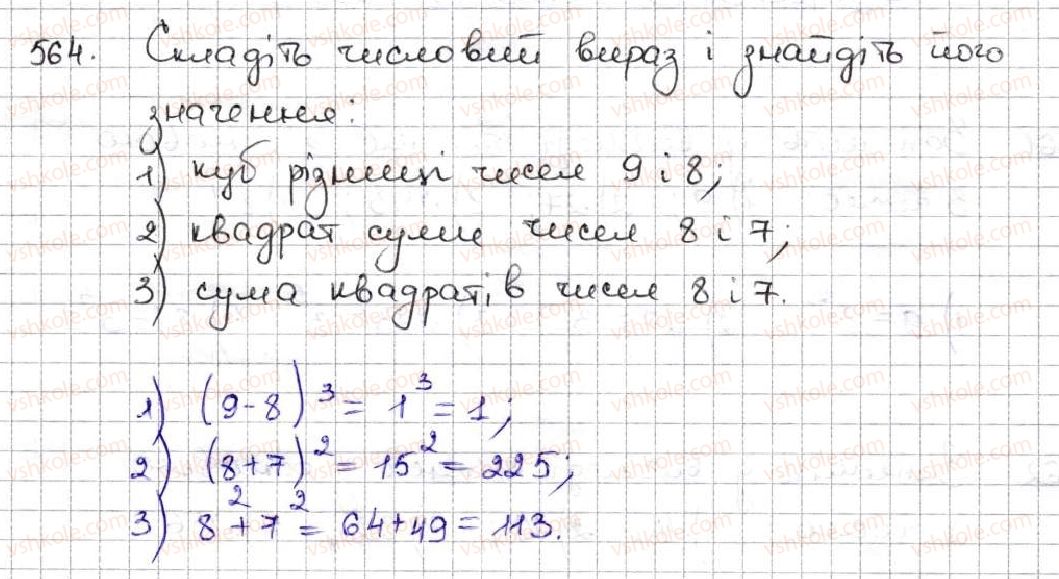 564. Складіть числовий вираз і знайдіть його
значення:
1) куб різниці чисел 9 і 8;
2) квадрат суми чисел 8 і 7;
3) сума квадратів чисел 8 і 7.
1) (9-8)³ = 1³ = 1;
2) (8+7)² = 15² = 225;
3) 8²+7² = 64+49 = 113.